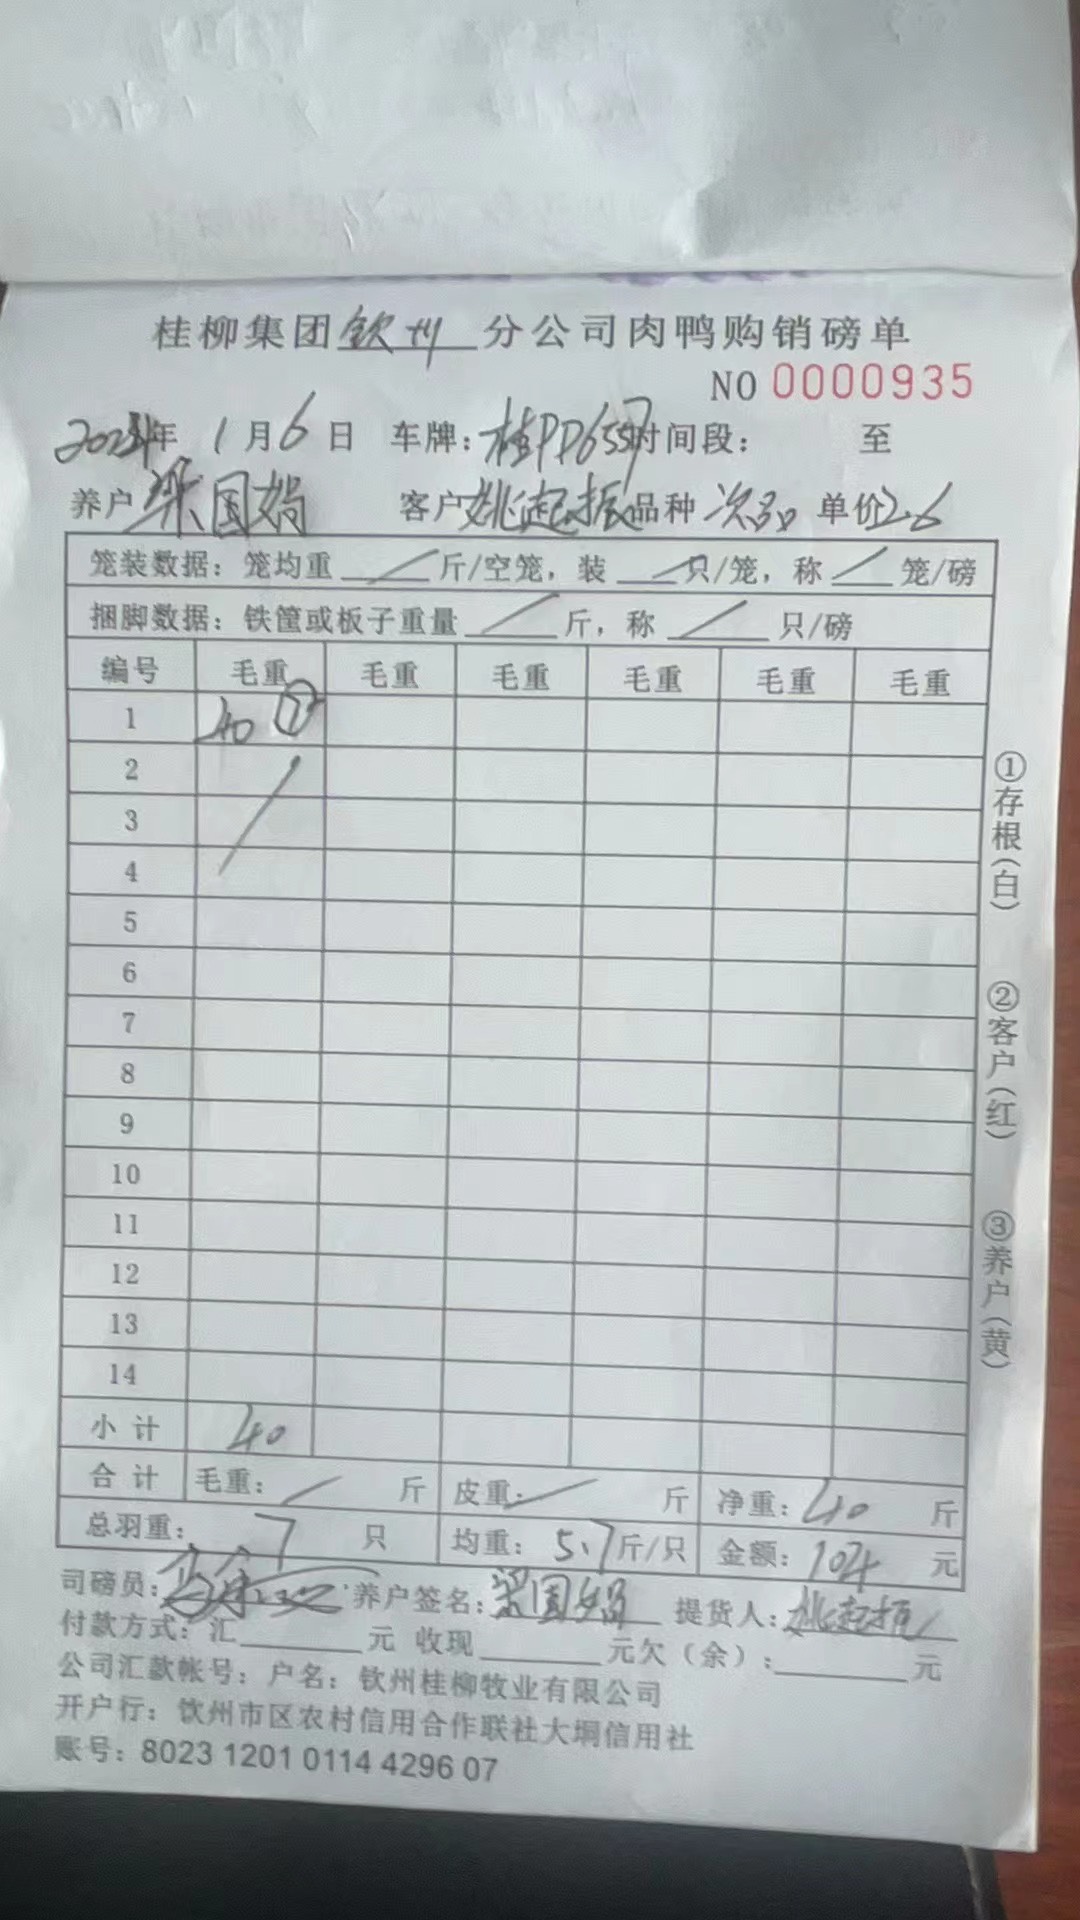 桂柳集团钦州分公司肉鸭购销磅单
NO 0000935
2024年 1月6日 车牌：桂PD6557 时间段： 至
养户 梁国娟 客户 姚起振 品种 次品 单价2.6
笼装数据：笼均重 / 斤/空笼，装 / 只/笼，称 / 笼/磅
捆脚数据：铁筐或板子重量 / 斤，称 / 只/磅
编号 毛重 毛重 毛重 毛重 毛重 毛重
1 40 ⑦
2
3
4
5
6
7
8
9
10
11
12
13
14
小计 40
合计 毛重：/ 斤 皮重：/ 斤 净重：40 斤
总羽重：7 只 均重：5.7斤/只 金额：104 元
司磅员： 养户签名：梁国娟 提货人：姚起振
付款方式：汇 元 收现 元欠（余）： 元
公司汇款帐号：户名：钦州桂柳牧业有限公司
开户行：钦州市区农村信用合作联社大垌信用社
账号：8023 1201 0114 4296 07
①存根（白）
②客户（红）
③养户（黄）